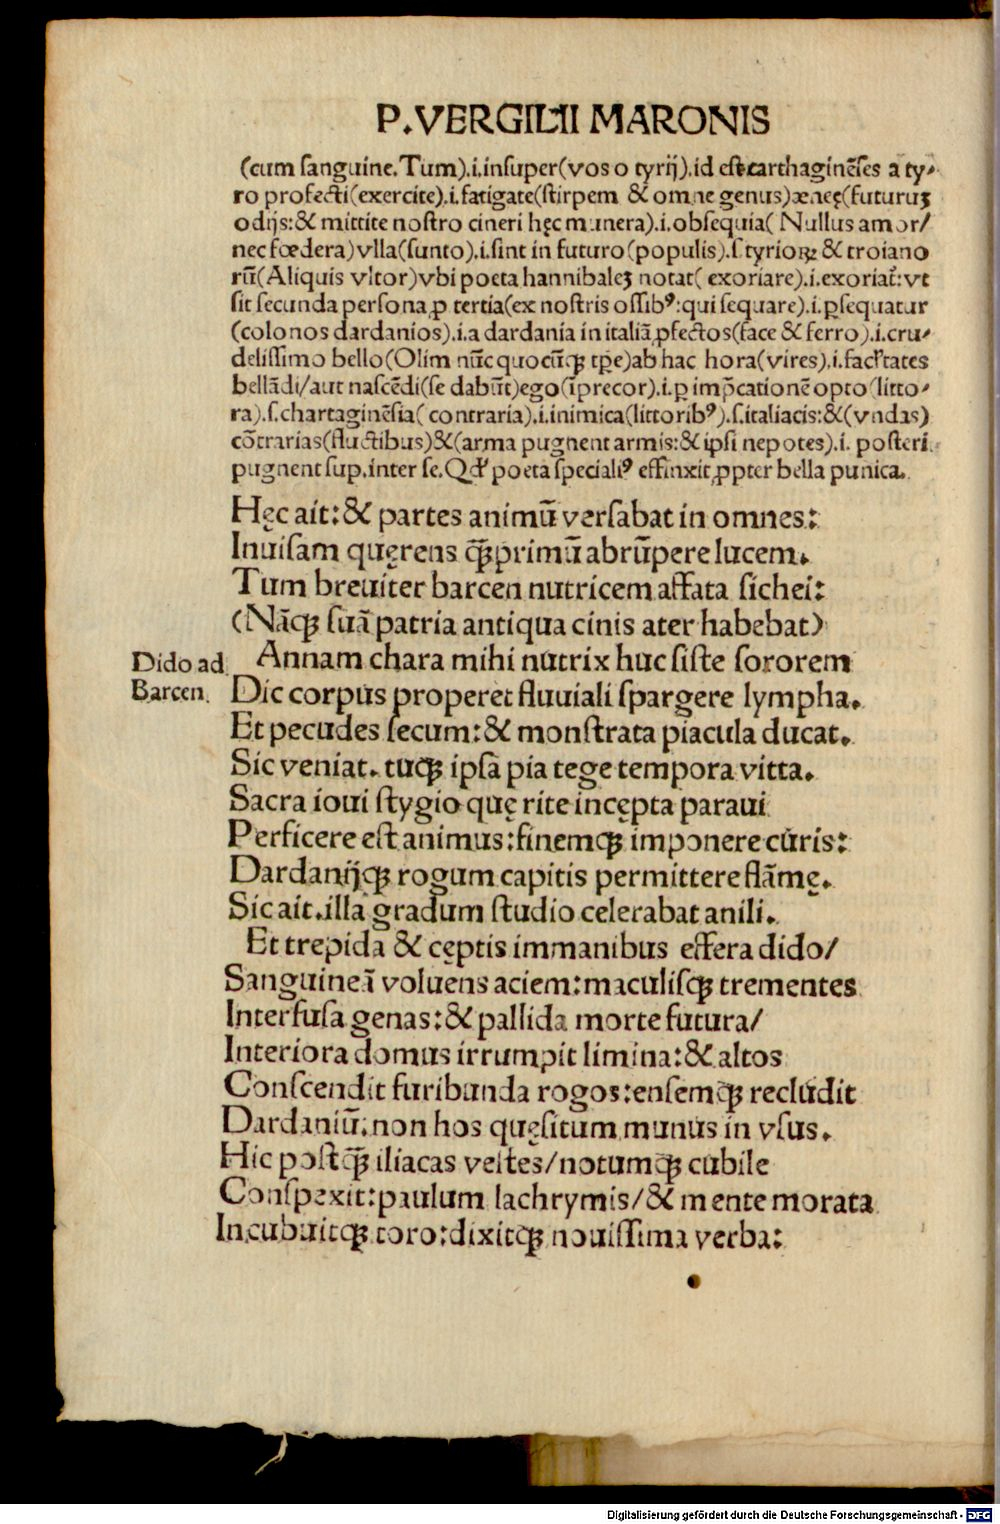 P.VERGILII MARONIS
(cum sanguine. Tum).i.insuper(vos o tyrij).id est carthaginẽses a ty-
ro profecti(exercite).i.fatigate(ſtirpem & omne genus)ænęę(futuruꝫ
odijs:& mittite nostro cineri hęc munera).i.obsequia( Nullus amor/
nec fœdera)vlla(sunto).i.sint in futuro(populis).ſ.tyrioꝝ & troiano
rũ(Aliquis vltor)vbi poeta hannibaleꝫ notat( exoriare).i.exoriat̃:vt
sit secunda persona,ꝓ tertia(ex nostris ossibꝰ:qui sequare).i.ꝑsequatur
(colonos dardanios).i.a dardania in italiã,ꝓfectos(face & ferro).i.cru-
delissimo bello(Olim nũc quocũqꝫ tꝑe)ab hac hora(vires).i.facl'tates
bellãdi/aut nascẽdi(se dabũt)ego(ĩprecor).i.ꝑ imp̃cationẽ opto(litto-
ra).ſ.chartaginẽsia( contraria).i.inimica(littoribꝰ).ſ.italiacis:&(vndas)
cõtrarias(fluctibus)&(arma pugnent armis:& ipsi nepotes).i. posteri
pugnent sup.inter se.Qď poeta specialiꝰ effinxit,ꝓpter bella punica.
Hęc ait:& partes animũ versabat in omnes:
Inuisam quęrens q̃ꝫprimũ abrũpere lucem.
Tum breuiter barcen nutricem affata sichei:
(Nãqꝫ suã patria antiqua cinis ater habebat)
Dido ad Barcen.
Annam chara mihi nutrix huc siste sororem
Dic corpus properet fluuiali spargere lympha.
Et pecudes secum:& monstrata piacula ducat.
Sic veniat. tuqꝫ ipsa pia tege tempora vitta.
Sacra ioui stygio quę rite incępta paraui
Perficere est animus:finemqꝫ imponere curis:
Dardanijqꝫ rogum capitis permittere flãmę.
Sic ait.illa gradum studio celerabat anili.
Et trepida & cęptis immanibus effera dido/
Sanguineã voluens aciem:maculisqꝫ trementes
Interfusa genas:& pallida morte futura/
Interiora domus irrumpit limina:& altos
Conscendit furibunda rogos:ensemqꝫ recludit
Dardaniũ:non hos quęsitum munus in vsus.
Hic postq̃ꝫ iliacas vestes/notumqꝫ cubile
Conspexit:paulum lachrymis/& mente morata
Incubuitqꝫ toro:dixitqꝫ nouissima verba:
Digitalisierung gefördert durch die Deutsche Forschungsgemeinschaft - DFG